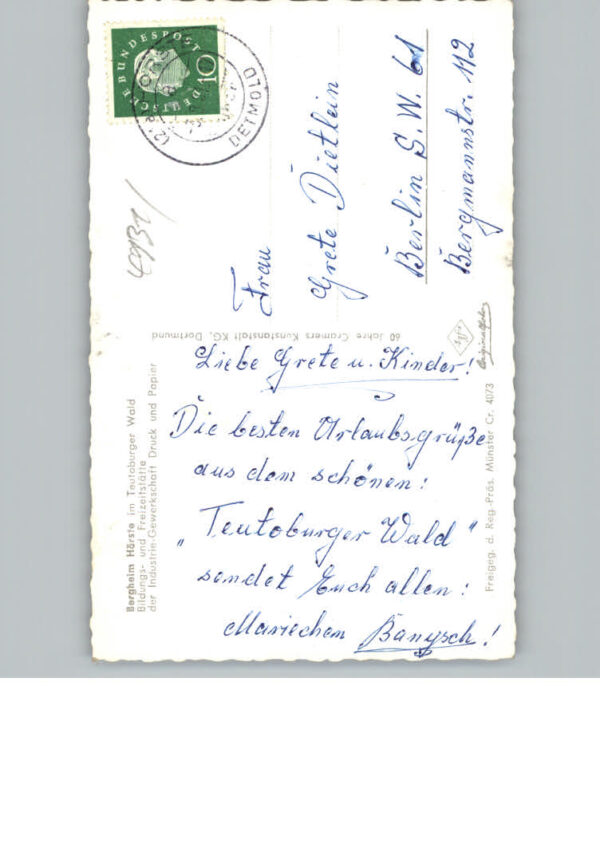 Liebe Grete u. Kinder!
Die besten Urlaubsgrüße
aus dem schönen:
„Teutoburger Wald"
sendet Euch allen:
Mariechen Banysch!
Frau
Grete Dietlein
Berlin S.W. 61
Bergmannstr. 112
Bergheim Hörste im Teutoburger Wald
Bildungs- und Freizeitstätte
der Industrie-Gewerkschaft Druck und Papier
60 Jahre Cramers Kunstanstalt KG, Dortmund
Freigeg. d. Reg-Präs. Münster Cr. 4073
DEUTSCHE BUNDESPOST
10
DETMOLD